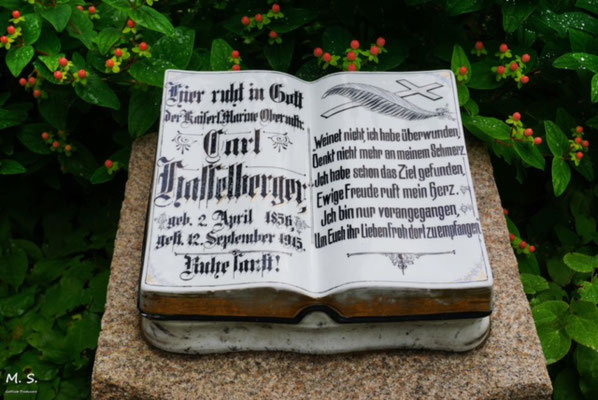 Hier ruht in Gott
der Kaiserl. Marine Obermstr.
Carl
Hasselberger
geb. 2. April 1856,
gest. 12. September 1915.
Ruhe sanft!
Weinet nicht, ich habe überwunden,
Denkt nicht mehr an meinem Schmerz.
Ich habe schon das Ziel gefunden,
Ewige Freude ruft mein Herz.
Ich bin nur vorangegangen,
Um Euch ihr Lieben Froh dort zu empfangen.
M. S.